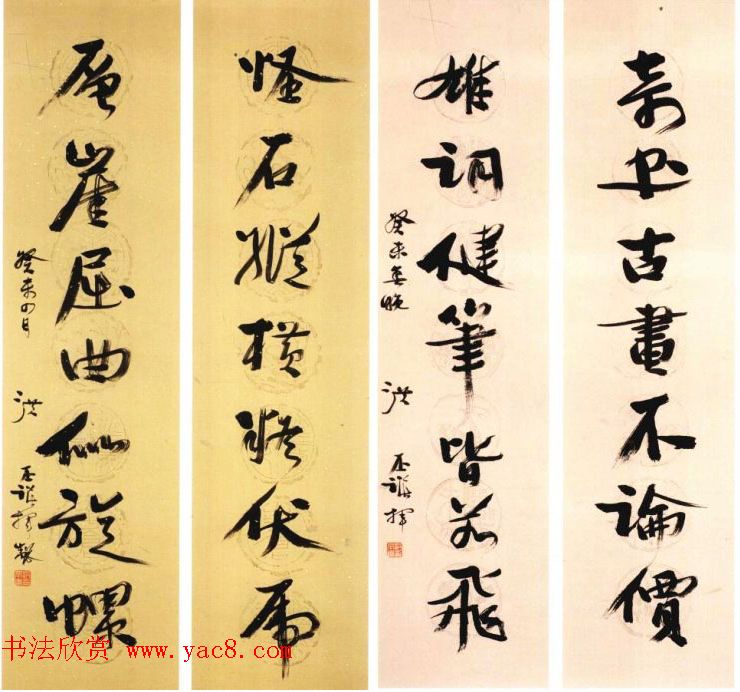 奇书古畫不論價
雄詞健筆皆若飛
癸未春晚 洪丕謨揮
怪石縱橫疑伏虎
層崖屈曲似旋螺
癸未四月 洪丕謨揮
书法欣赏 www.yac8.com